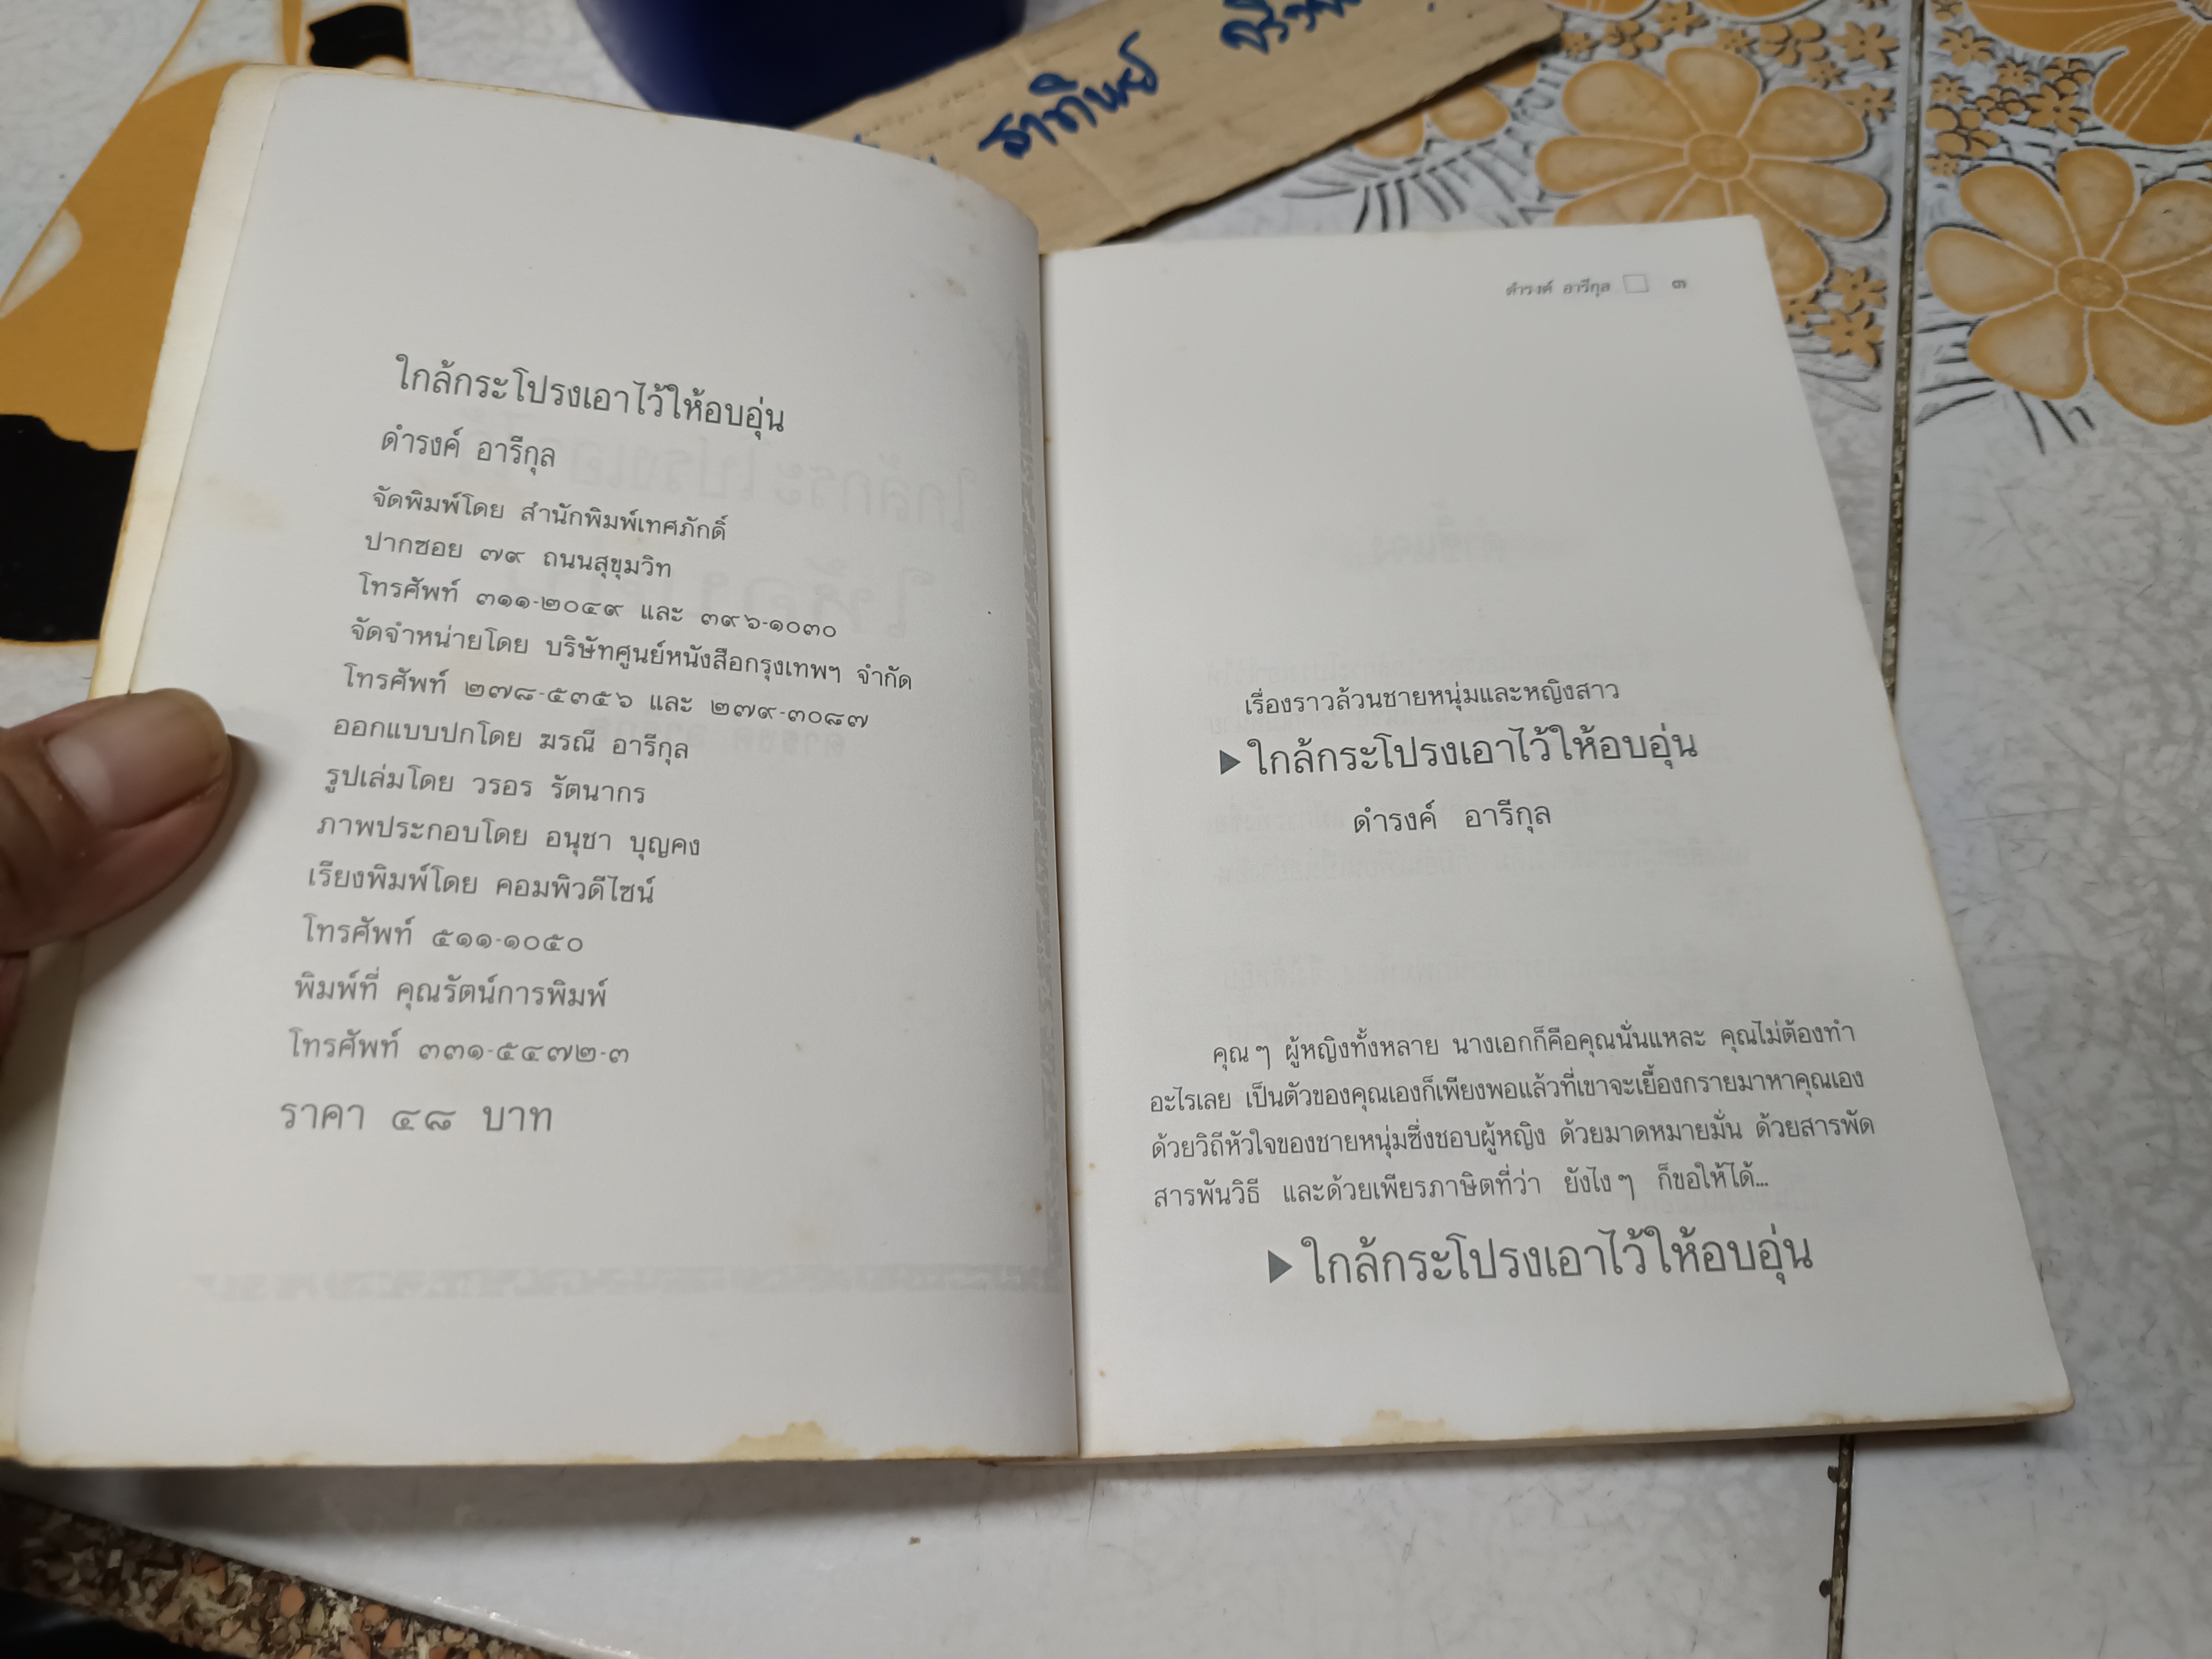 ธาทิพย์
ใกล้กระโปรงเอาไว้ให้อบอุ่น
ดำรงค์ อารีกุล
จัดพิมพ์โดย สำนักพิมพ์เทศภักดิ์
ปากซอย ๗๙ ถนนสุขุมวิท
โทรศัพท์ ๓๑๑-๒๐๔๙ และ ๓๙๖-๑๐๓๐
จัดจำหน่ายโดย บริษัทศูนย์หนังสือกรุงเทพฯ จำกัด
โทรศัพท์ ๒๗๘-๕๓๕๖ และ ๒๗๙-๓๐๘๗
ออกแบบปกโดย ฆรณี อารีกุล
รูปเล่มโดย วรอร รัตนากร
ภาพประกอบโดย อนุชา บุญคง
เรียงพิมพ์โดย คอมพิวดีไซน์
โทรศัพท์ ๕๑๑-๑๐๕๐
พิมพ์ที่ คุณรัตน์การพิมพ์
โทรศัพท์ ๓๓๑-๕๔๗๒-๓
ราคา ๔๘ บาท
ดำรงค์ อารีกุล ๓
เรื่องราวล้วนชายหนุ่มและหญิงสาว
ใกล้กระโปรงเอาไว้ให้อบอุ่น
ดำรงค์ อารีกุล
คุณๆ ผู้หญิงทั้งหลาย นางเอกก็คือคุณนั่นแหละ คุณไม่ต้องทำ
อะไรเลย เป็นตัวของคุณเองก็เพียงพอแล้วที่เขาจะเยื้องกรายมาหาคุณเอง
ด้วยวิถีหัวใจของชายหนุ่มซึ่งชอบผู้หญิง ด้วยมาดหมายมั่น ด้วยสารพัด
สารพันวิธี และด้วยเพียรภาษิตที่ว่า ยังไงๆ ก็ขอให้ได้...
ใกล้กระโปรงเอาไว้ให้อบอุ่น